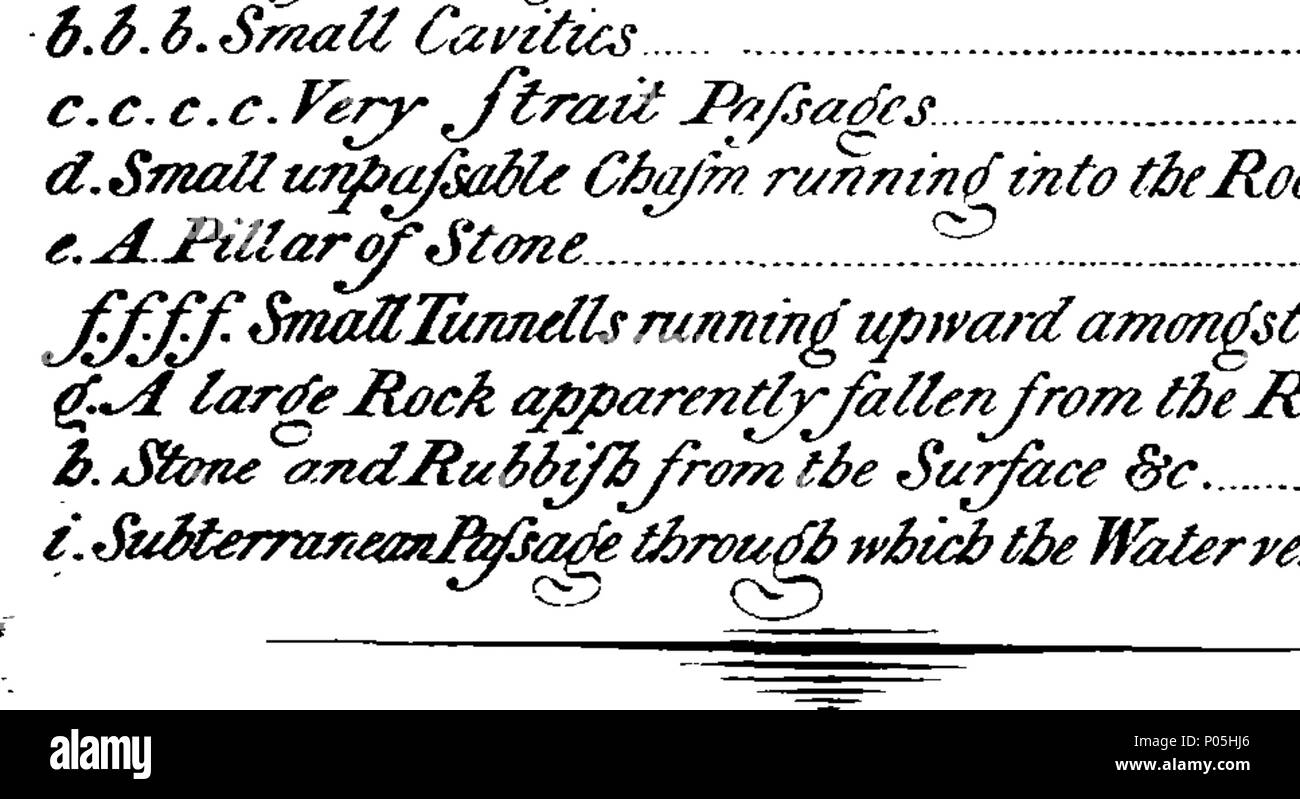 b.b.b. Small Cavities
c.c.c.c. Very ſtrait Paſsages
d. Small unpaſsable Chaſm running into the
e. A Pillar of Stone
f.f.f.f. Small Tunnells running upward amongst
g. A large Rock apparently fallen from the
h. Stone and Rubbiſh from the Surface &c.
i. Subterranean Paſsage through which the Water
alamy
Image ID: P05HJ6
www.alamy.com